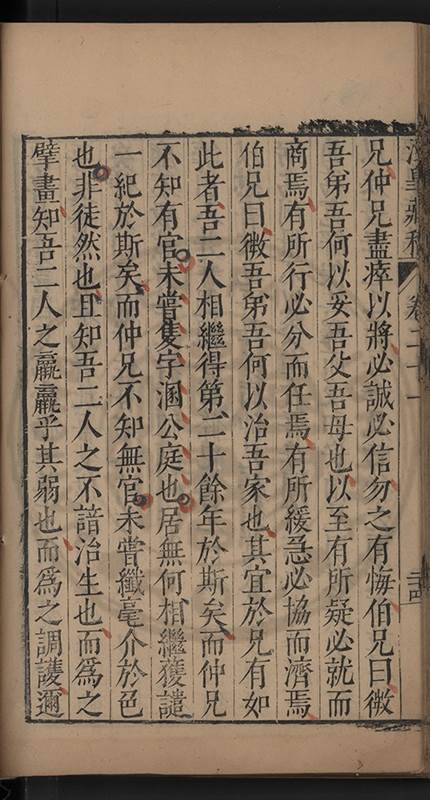 兄仲兄盡瘁以將必誠必信勿之有悔伯兄曰微
吾弟吾何以妥吾父吾母也以至有所疑必就而
商焉有所行必分而任焉有所緩急必協而濟焉
伯兄曰微吾弟吾何以治吾家也其宜於兄有如
此者吾二人相繼得第二十餘年於斯矣而仲兄
不知有官未嘗隻字溷公庭也居無何相繼獲譴
一紀於斯矣而仲兄不知無官未嘗纖毫介於色
也非徒然也且知吾二人之不諳治生也而為之
擘畫知吾二人之羸羸乎其弱也而為之調護邇